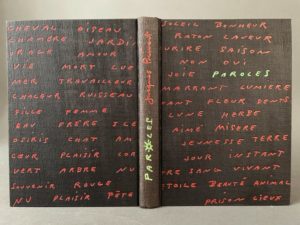 CHEVAL OISEAU
CHAMBRE JARDI
URAGE AMOUR
VIE MORT LUE
MER TRAVAILLEUR
CHALEUR RUISSEAU
FILLE FEMME
EAU FRÈRE ILE
DESIRS CHAT AN
CŒUR PLAISIR COR
VERT ARBRE NU
SOUVENIR ROUGE
NU PLAISIR FÊTE
Jacques Prévert
PAROLES
SOLEIL BONHEUR
RATON LAVEUR
OURIRE SAISON
NON OUI
JOIE PAROLES
MARRANT LUMIERE
ANT FLEUR DENTS
LUNE HERBE
AIMÉ MISERE
JEUNESSE TERRE
JOUR INSTANT
RE SANG VIVANT
ETOILE BEAUTÉ ANIMAL
PRISON LIEUX